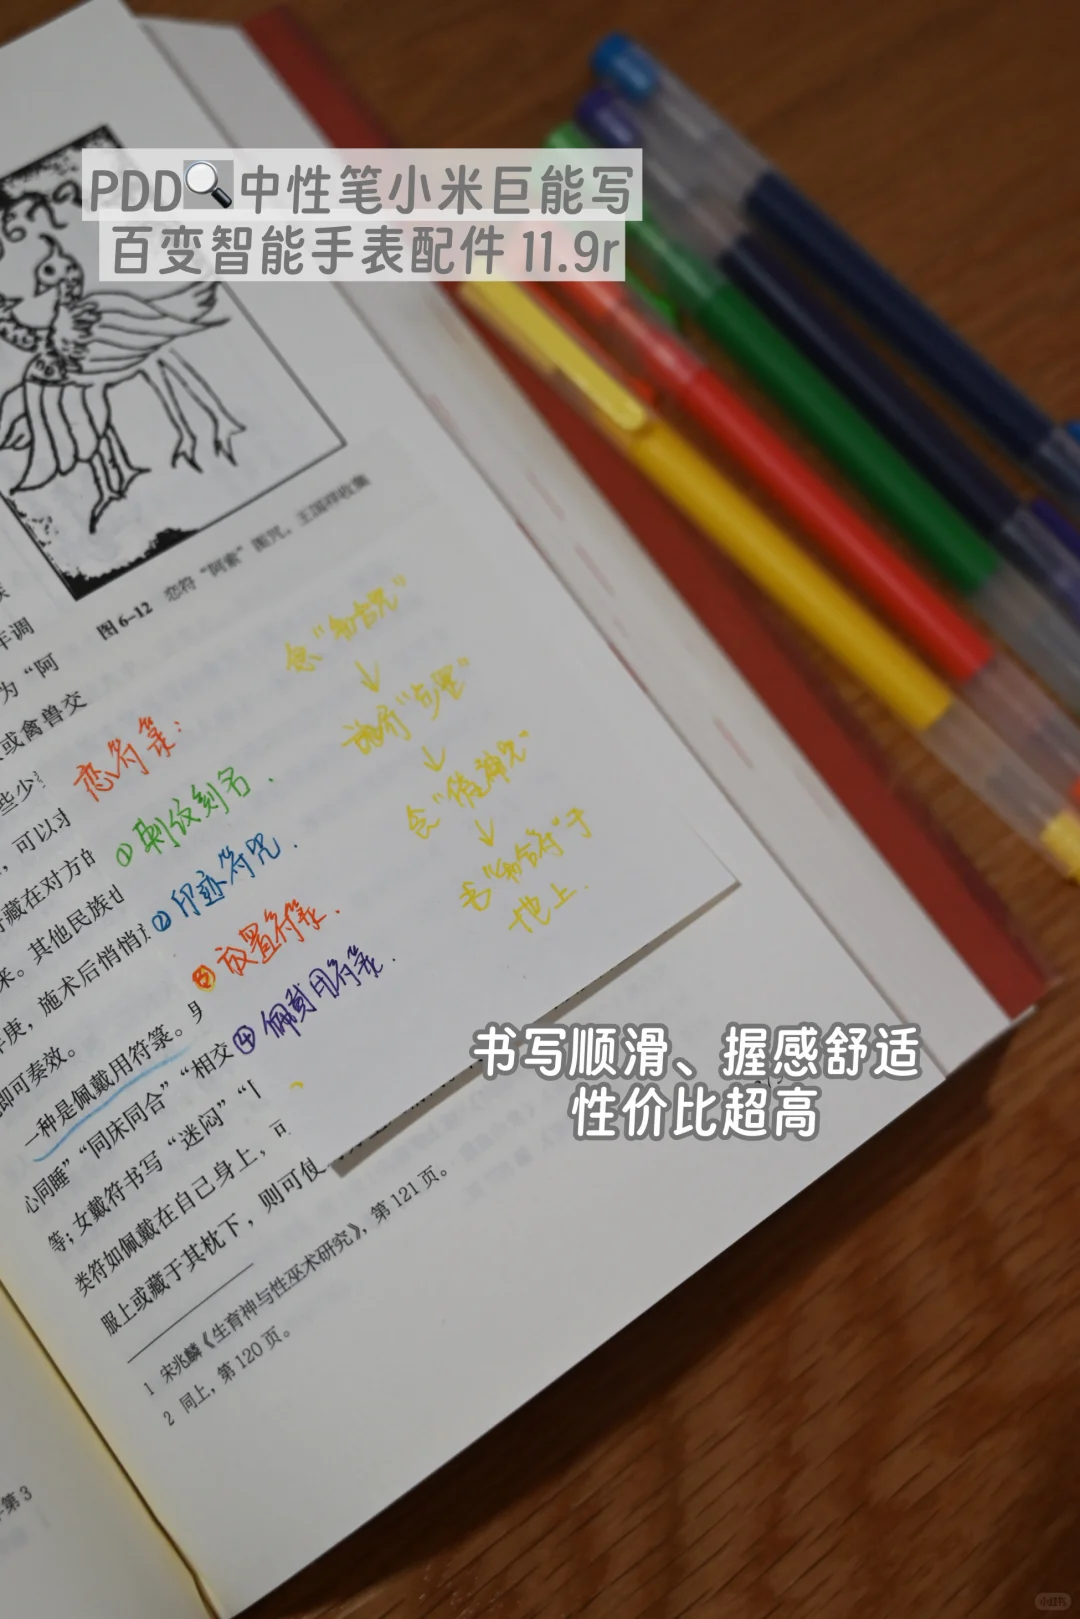 PDD🔍中性笔小米巨能写
百变智能手表配件 11.9r
图6-12 恋符“阿索”图咒，王国祥收集
年调
为“阿
或禽兽交
些少
，可以对
藏在对方的
来。其他民族也
，施术后悄悄
年庚，
即可奏效。
一种是佩戴用符箓。男
心同睡”“同床同合”“相交
等；女戴符书写“迷闷”“
类符如佩戴在自己身上，可
服上或藏于其枕下，则可使
1 宋兆麟《生育神与性巫术研究》，第121页。
2 同上，第120页。
第3
恋符箓：
①刺纹刻名.
②印迹符咒.
③放置符箓.
④佩戴用符箓.
念“和合咒”
↓
↓
念“催神咒”
↓
书“和合符”于
地上.
书写顺滑、握感舒适
性价比超高
小红书